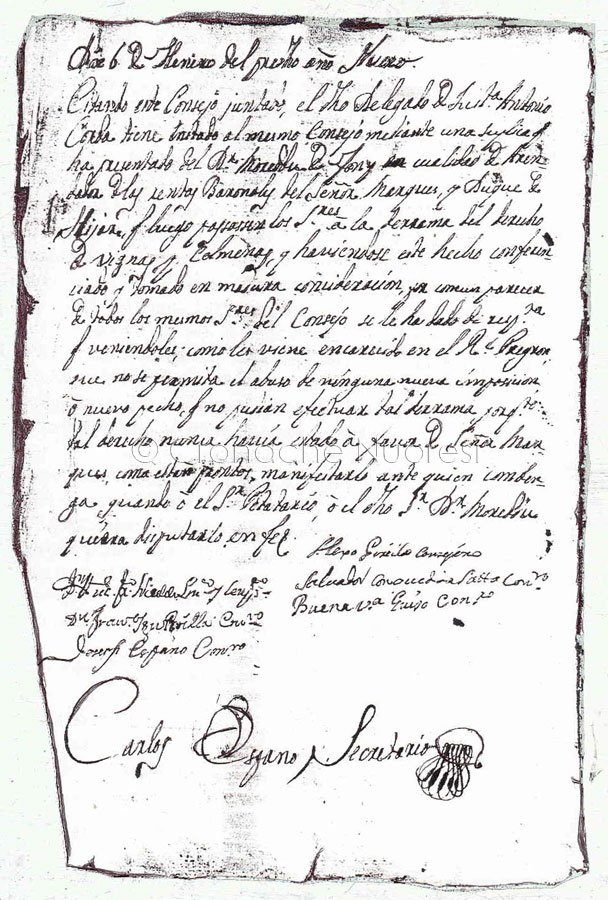 6 de Henero del preſto año Nuoro.
Estando este Consejo juntado, el dho Delegado de Just.ª Antonio
Corda tiene entrado al mesmo Consejo mediante una suplica q
ha presentado del D.r Moreddu de Fonny en cualidad de Aren-
dador de las rentas Baronales del Señor Marques, y Duque de
Hijar, q luego passassen los S.res a la derrama del derecho
de vignas, y Colmenas, y haviendose este hecho conferen-
ciado, y tomado en matura consideracion, por comun parecer
de todos los mesmos S.res del Consejo se le ha dado de resp.ta
q veniendoles, como les viene encarecido en el R.l Pregon
que no se permita el abuso de ninguna nueva imposicion
ò nuevo pecho, q no pueden efectuar tal derrama, porq.to
tal derecho nunca havia estado à favor de Señor Mar-
ques, como estan prontos, manifestarlo ante quien conber-
ga quando ò el S.r Potatario, ò el dho S.r D.r Moreddu
quiera disputarlo, en fee.
Consejero
Salvador Satta Con.ro
Buena v.ra Guiso Con.ro
Con.ro
Joseph Espano Con.ro
Carlos Espano, Secretario
© Cronache Nuoresi